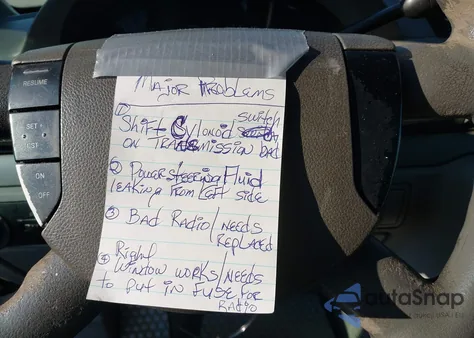 RESUME
SET +
ON
OFF
MAJOR PROBLEMS
① switch
Shift Sylonoid
ON TRANSMISSION bad
② Power steering Fluid
leaking From Left side
③ Bad Radio / Needs
Replaced
④ Right
Window works / Needs
to put in Fuse For
Radio
autaSnap